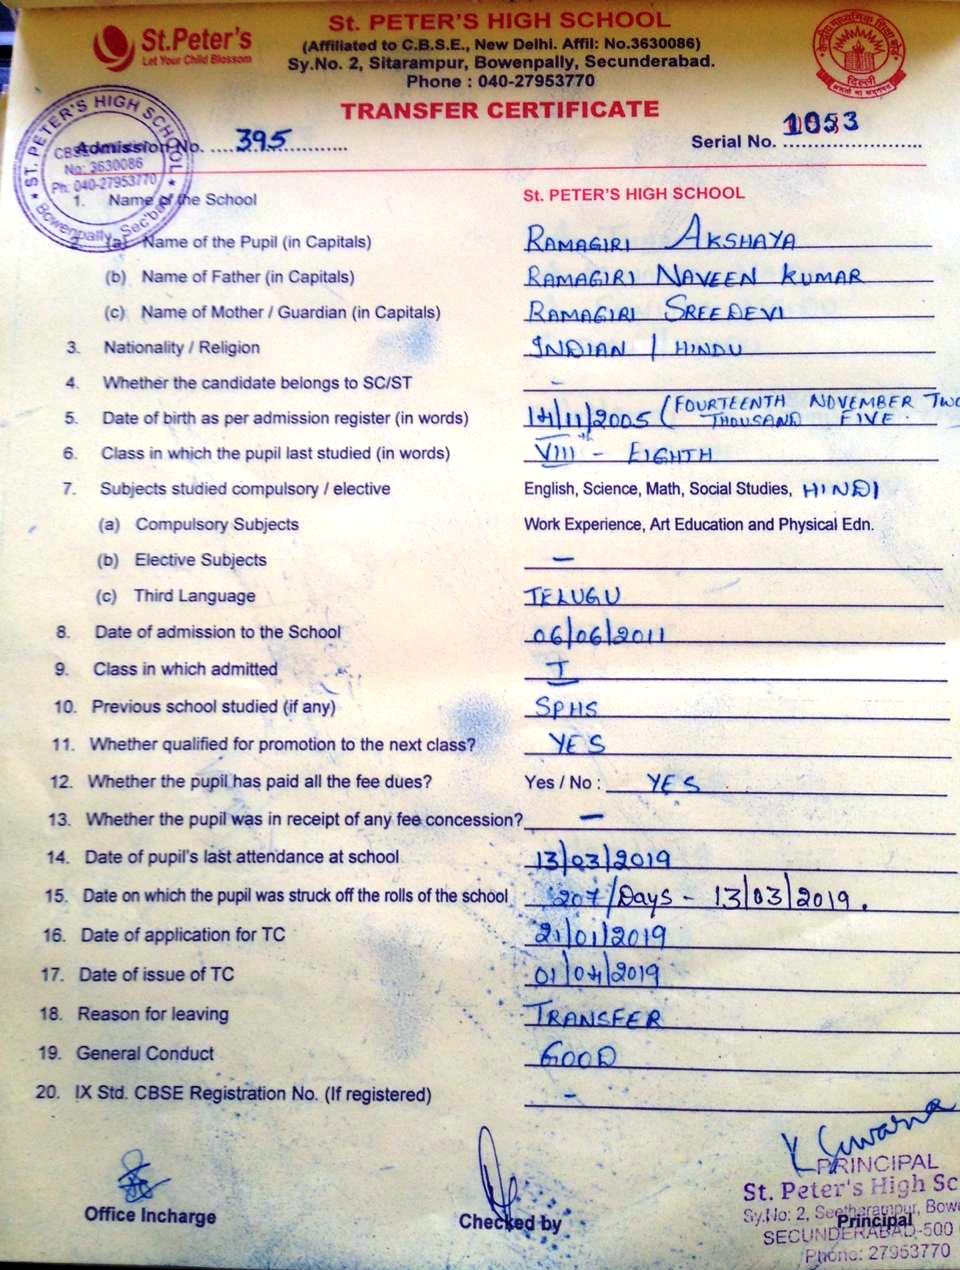 St.Peter's
Let Your Child Blossom
St. PETER'S HIGH SCHOOL
(Affiliated to C.B.S.E., New Delhi. Affil: No.3630086)
Sy.No. 2, Sitarampur, Bowenpally, Secunderabad.
Phone : 040-27953770
TRANSFER CERTIFICATE
ST. PETER'S HIGH SCHOOL
CBSE
No: 3630086
Ph: 040-27953770
Bowenpally, Sec'bad
Admission No. ....395..............
Serial No. 1053
1. Name of the School St. PETER'S HIGH SCHOOL
2. (a) Name of the Pupil (in Capitals) RAMAGIRI AKSHAYA
(b) Name of Father (in Capitals) RAMAGIRI NAVEEN KUMAR
(c) Name of Mother / Guardian (in Capitals) RAMAGIRI SREEDEVI
3. Nationality / Religion INDIAN / HINDU
4. Whether the candidate belongs to SC/ST -
5. Date of birth as per admission register (in words) 14/11/2005 (FOURTEENTH NOVEMBER TWO
THOUSAND FIVE.
6. Class in which the pupil last studied (in words) VIIIth - EIGHTH
7. Subjects studied compulsory / elective English, Science, Math, Social Studies, HINDI
(a) Compulsory Subjects Work Experience, Art Education and Physical Edn.
(b) Elective Subjects —
(c) Third Language TELUGU
8. Date of admission to the School 06/06/2011
9. Class in which admitted I
10. Previous school studied (if any) SPHS
11. Whether qualified for promotion to the next class? YES
12. Whether the pupil has paid all the fee dues? Yes / No : YES
13. Whether the pupil was in receipt of any fee concession? —
14. Date of pupil's last attendance at school 13/03/2019
15. Date on which the pupil was struck off the rolls of the school 207/Days - 13/03/2019.
16. Date of application for TC 21/01/2019
17. Date of issue of TC 01/04/2019
18. Reason for leaving TRANSFER
19. General Conduct GOOD
20. IX Std. CBSE Registration No. (If registered) -
K Suwarna
PRINCIPAL
St. Peter's High Sc
Sy.No: 2, Seetharampur, Bow
SECUNDERABAD-500
Phone: 27953770
Office Incharge
Checked by
Principal